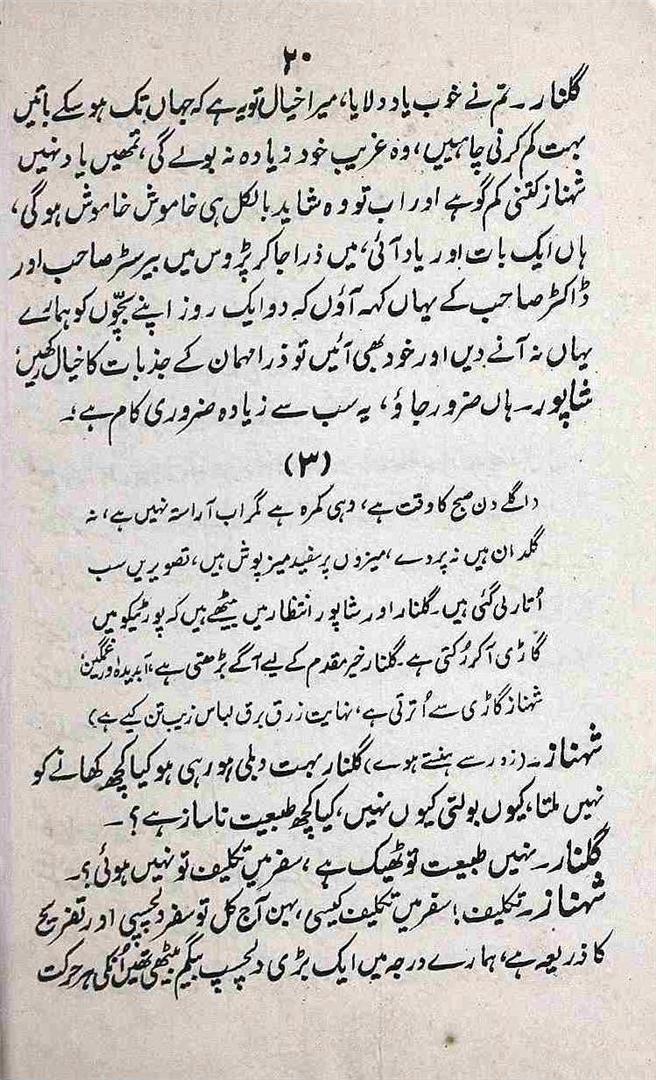 ۲۰
گلنار۔ تم نے خوب یاد دلایا، میرا خیال تو یہ ہے کہ جہاں تک ہو سکے باتیں
بہت کم کرنی چاہئیں، وہ غریب خود زیادہ نہ بولے گی، تمھیں یاد نہیں
شہناز کتنی کم گو ہے اور اب تو وہ شاید بالکل ہی خاموش خاموش ہو گی،
ہاں ایک بات اور یاد آئی، میں ذرا جا کر پڑوس میں بیرسٹر صاحب اور
ڈاکٹر صاحب کے یہاں کہہ آؤں کہ دو ایک روز اپنے بچّوں کو ہمارے
یہاں نہ آنے دیں اور خود بھی آئیں تو ذرا مہمان کے جذبات کا خیال رکھیں
شاپور۔ ہاں ضرور جاؤ، یہ سب سے زیادہ ضروری کام ہے۔
(۳)
(اگلے دن صبح کا وقت ہے، وہی کمرہ ہے مگر اب آراستہ نہیں ہے، نہ
گلدان ہیں نہ پردے، میزوں پر سفید میز پوش ہیں، تصویریں سب
اُتار لی گئی ہیں۔ گلنار اور شاپور انتظار میں بیٹھے ہیں کہ پورٹیکو میں
گاڑی آکر رُکتی ہے۔ گلنار خیر مقدم کے لیے آگے بڑھتی ہے، آبدیدہ اور غمگین،
شہناز گاڑی سے اُترتی ہے، نہایت زرق برق لباس زیب تن کیے ہے)
شہناز۔ (زور سے ہنستے ہوے) گلنار بہت دبلی ہو رہی ہو کیا کچھ کھانے کو
نہیں ملتا، کیوں بولتی کیوں نہیں، کیا کچھ طبیعت ناساز ہے؟۔
گلنار۔ نہیں طبیعت تو ٹھیک ہے، سفر میں تکلیف تو نہیں ہوئی؟۔
شہناز۔ تکلیف! سفر میں تکلیف کیسی، بہن آج کل تو سفر دلچسپی اور تفریح
کا ذریعہ ہے، ہمارے درجہ میں ایک بڑی دلچسپ بیگم بیٹھی تھیں اُنکی ہر حرکت